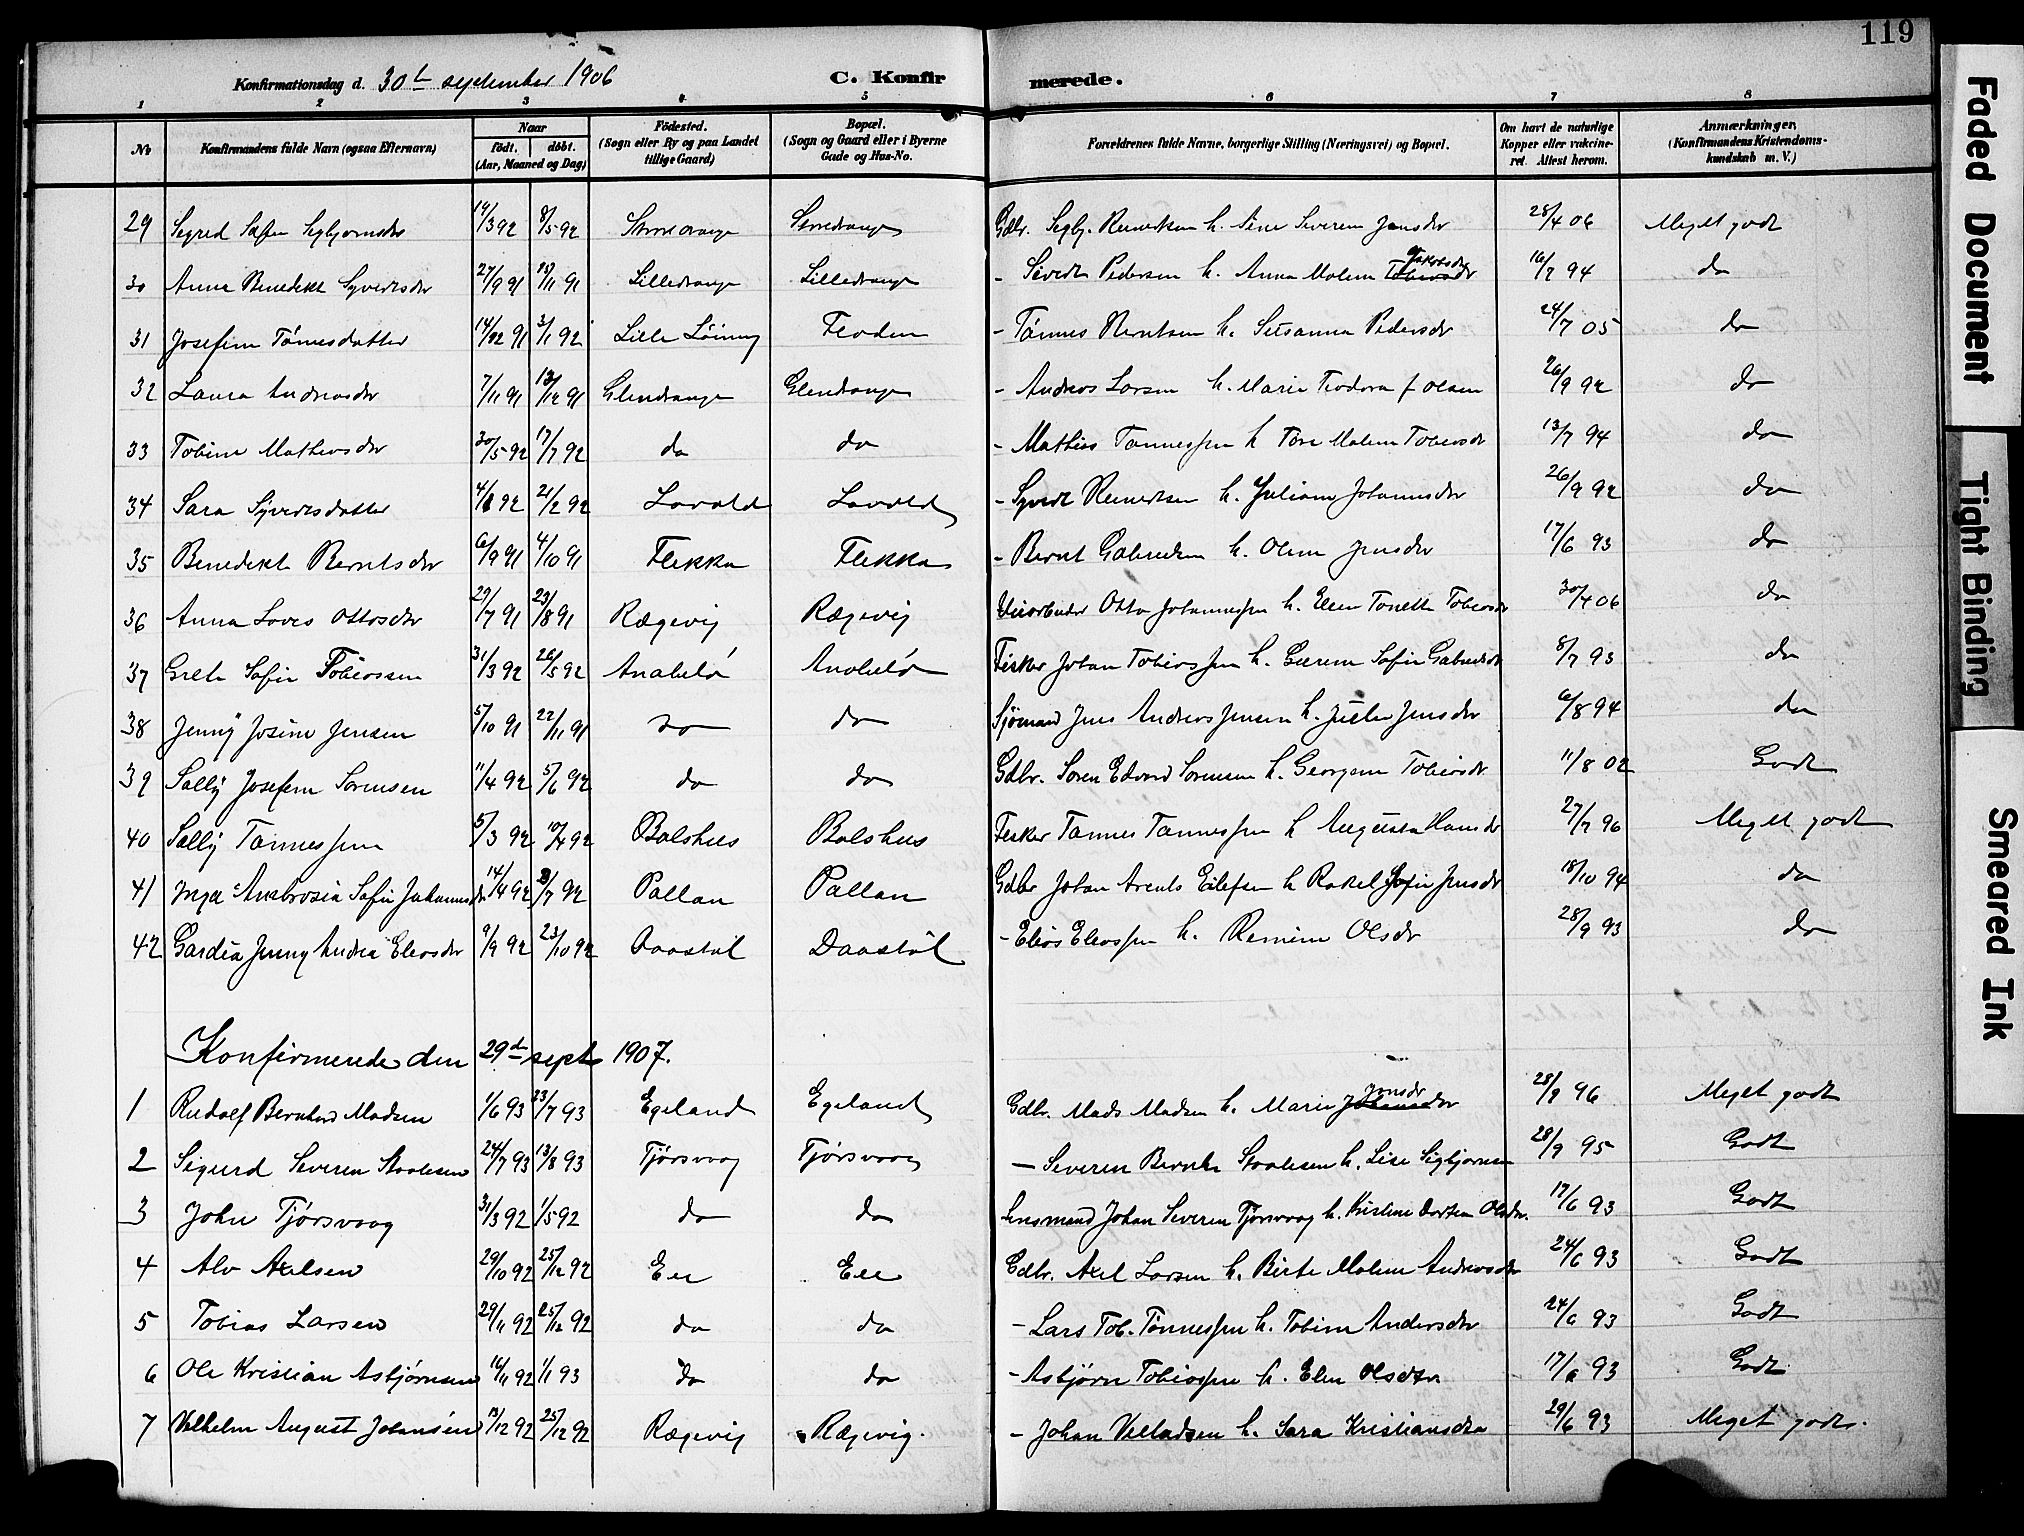 119
Konfirmationsdag d. 30te september 1906 C. Konfirmerede.
1 2 3 4 5 6 7 8
No Konfirmandens fulde Navn (ogsaa Efternavn) Naar født. døbt. (Aar, Maaned og Dag) Fødested. (Sogn eller By og paa Landet tillige Gaard) Bopæl. (Sogn og Gaard eller i Byerne Gade og Hus-No. Forældrenes fulde Navne, borgerlige Stilling (Næringsvei) og Bopæl. Om havt de naturlige Kopper eller vaccineret. Attest herom. Anmærkninger, (Konfirmandens Kristendomskundskab m. V.)
29 Sigrid Sofie Sigbjørnsdr 14/3 92 8/5 92 Storedrange Storedrange Gdbr. Sigbj. Reinertsen h. Sine Severine Jensdr 28/4 06 Meget godt
30 Anna Benedikte Syvertsdr 27/9 91 18/11 91 Lilledrange Lilledrange - Sivert Pedersen h. Anna Malene Tobiasdr Jakobsdr 16/7 94 do
31 Josefine Tønnesdatter 14/12 91 3/1 92 Lille Løining Floden - Tønnes Berntsen h. Susanna Pedersdr 24/7 05 do
32 Laura Andreasdr 7/11 91 13/12 91 Glendrange Glendrange - Andreas Larsen h. Marie Teodora f. Olsen 26/9 92 do
33 Tobine Mathiasdr 30/5 92 17/7 92 do do - Mathias Tønnessen h Tore Malene Tobiasdr 13/7 94 do
34 Sara Syvertsdatter 4/1 92 21/2 92 Lavold Lavold - Syvert Reinertsen h. Juliane Johannesdr 26/9 92 do
35 Benedikte Berntsdr 6/9 91 4/10 91 Flikka Flikka - Bernt Gabrielsen h. Oline Jensdr 17/6 93 do
36 Anna Lovis Ottosdr 29/7 91 23/8 91 Rægevig Rægevig Veiarbeider Otto Johannessen h. Elen Tonette Tobiasdr 30/4 06 do
37 Grete Sofie Tobiassen 31/3 92 26/5 92 Anabeløi Anabeløi Fisker Johan Tobiassen h. Gurine Sofie Gabrielsdr 8/7 93 do
38 Jenny Josine Jensen 5/10 91 22/11 91 do do Sjømand Jens Andreas Jensen h. Julie Jensdr 6/8 94 do
39 Sally Josefine Sørensen 11/4 92 5/6 92 do do Gdbr. Søren Edvard Sørensen h. Georgine Tobiasdr 11/8 02 Godt
40 Sally Tønnessen 5/3 92 10/4 92 Bolshus Bolshus Fisker Tønnes Tønnessen h Augusta Hansdr 27/7 96 Meget godt
41 Inga Ambrosia Sofie Johannesdr 14/4 92 3/7 92 Pallan Pallan Gdbr Johan Arents Eilefsen h Rakel Sofie Jensdr 18/10 94 do
42 Gardia Jenny Andrea Eliasdr 9/9 92 23/10 92 Daastøl Daastøl - Elias Eliassen h. Remine Olsdr 28/9 93 do
Konfirmerede den 29de sept 1907.
1 Rudolf Bernhard Madsen 1/6 93 23/7 93 Egeland Egeland Gdbr. Mads Madsen h. Marie Johansdr Jonsdr 28/9 96 Meget godt
2 Sigurd Severin Staalesen 24/7 93 13/8 93 Tjørsvaag Tjørsvaag - Severin Bernh. Staalesen h. Lise Sigbjørnsen 28/9 95 Godt
3 John Tjørsvaag 31/3 92 1/5 92 do do Lensmand Johan Severin Tjørsvaag h. Kristine Dortea Olsdr. 17/6 93 Godt
4 Alv Axelsen 29/10 92 25/12 92 Eie Eie Gdbr. Axel Larsen h. Birte Malene Andreasdr 24/6 93 Godt
5 Tobias Larsen 29/11 92 25/12 92 do do - Lars Tob. Tønnessen h. Tobine Andersdr 24/6 93 Godt
6 Ole Kristian Asbjørnsen 16/11 92 1/1 93 do do - Asbjørn Tobiassen h. Elen Olsdtr. 17/6 93 Godt
7 Vilhelm August Johansen 13/12 92 25/12 92 Rægevig Rægevig. - Johan Villadsen h. Sara Kristiansdtr 29/6 93 Meget godt.
Faded Document
Tight Binding
Smeared Ink